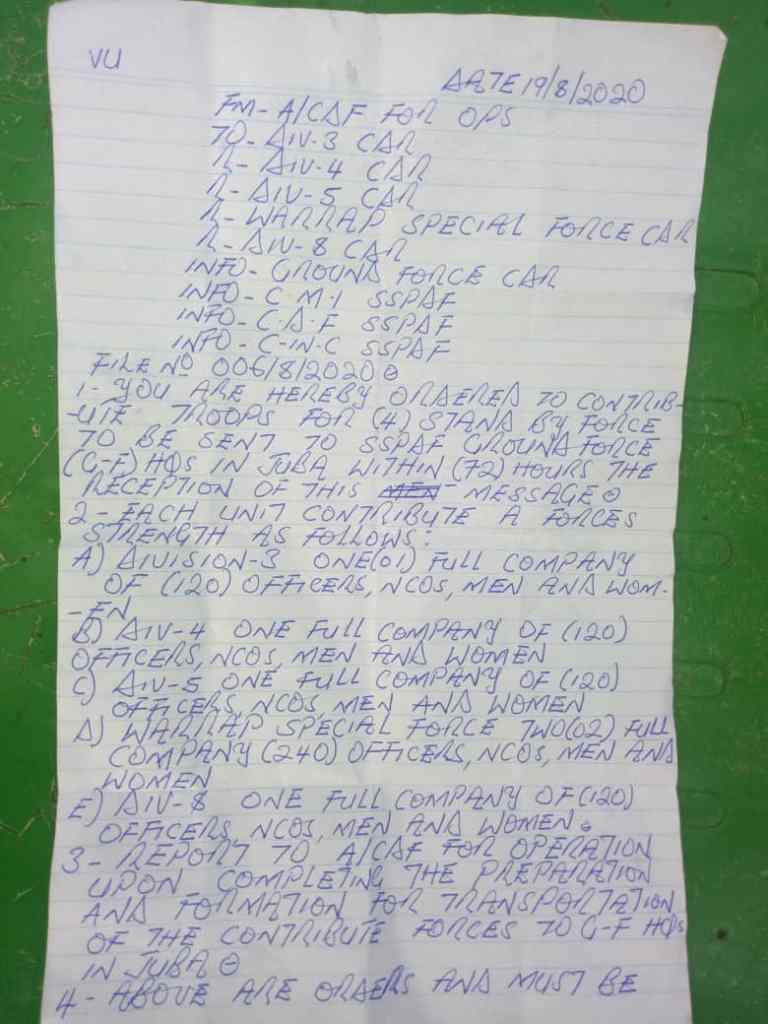 VU
DATE 19/8/2020
FM- A/CDF FOR OPS
TO- DIV-3 CDR
R- DIV-4 CDR
R- DIV-5 CDR
R- WARRAP SPECIAL FORCE CDR
R- DIV-8 CDR
INFO- GROUND FORCE CDR
INFO- C.M.I SSPDF
INFO- C.D.F SSPDF
INFO- C-IN-C SSPDF
FILE NO 006/8/2020
1- YOU ARE HEREBY ORDERED TO CONTRIB-
-UTE TROOPS FOR (4) STAND BY FORCE
TO BE SENT TO SSPDF GROUND FORCE
(G-F) HQS IN JUBA WITHIN (72) HOURS THE
RECEPTION OF THIS MESSAGE
2- EACH UNIT CONTRIBUTE A FORCES
STRENGTH AS FOLLOWS:
A) DIVISION-3 ONE(01) FULL COMPANY
OF (120) OFFICERS, NCOS, MEN AND WOM-
-EN
B) DIV-4 ONE FULL COMPANY OF (120)
OFFICERS, NCOS, MEN AND WOMEN
C) DIV-5 ONE FULL COMPANY OF (120)
OFFICERS, NCOS MEN AND WOMEN
D) WARRAP SPECIAL FORCE TWO(02) FULL
COMPANY (240) OFFICERS, NCOS, MEN AND
WOMEN
E) DIV-8 ONE FULL COMPANY OF (120)
OFFICERS, NCOS, MEN AND WOMEN.
3- REPORT TO A/CDF FOR OPERATION
UPON COMPLETING THE PREPARATION
AND FORMATION FOR TRANSPORTATION
OF THE CONTRIBUTE FORCES TO G-F HQS
IN JUBA
4- ABOVE ARE ORDERS AND MUST BE